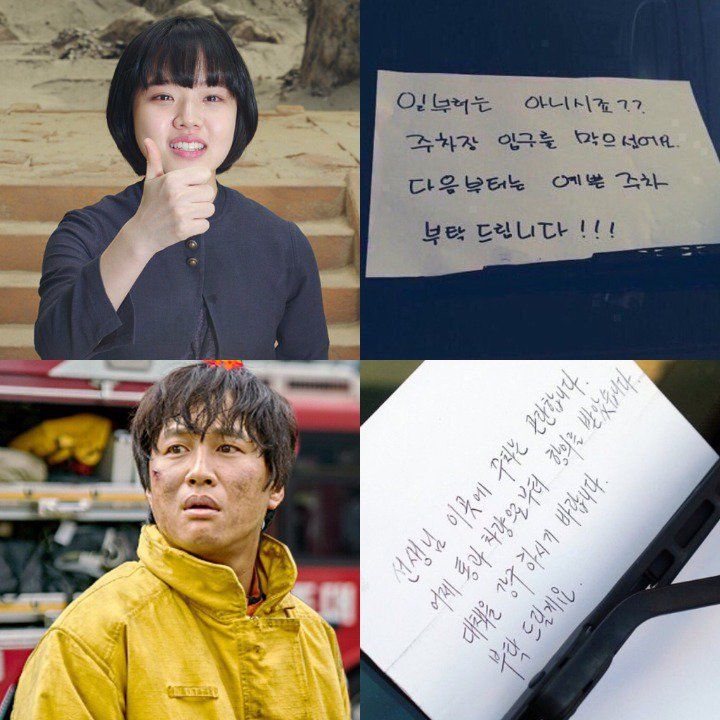 일부러는 아니시죠??
주차장 입구를 막으셨어요.
다음부터는 예쁜 주차
부탁 드립니다!!!
선생님 이곳에 주차는 곤란합니다
어제 통과 차량으로부터 항의를 받았습니다.
대책을 강구 하시기 바랍니다.
부탁 드릴게요.